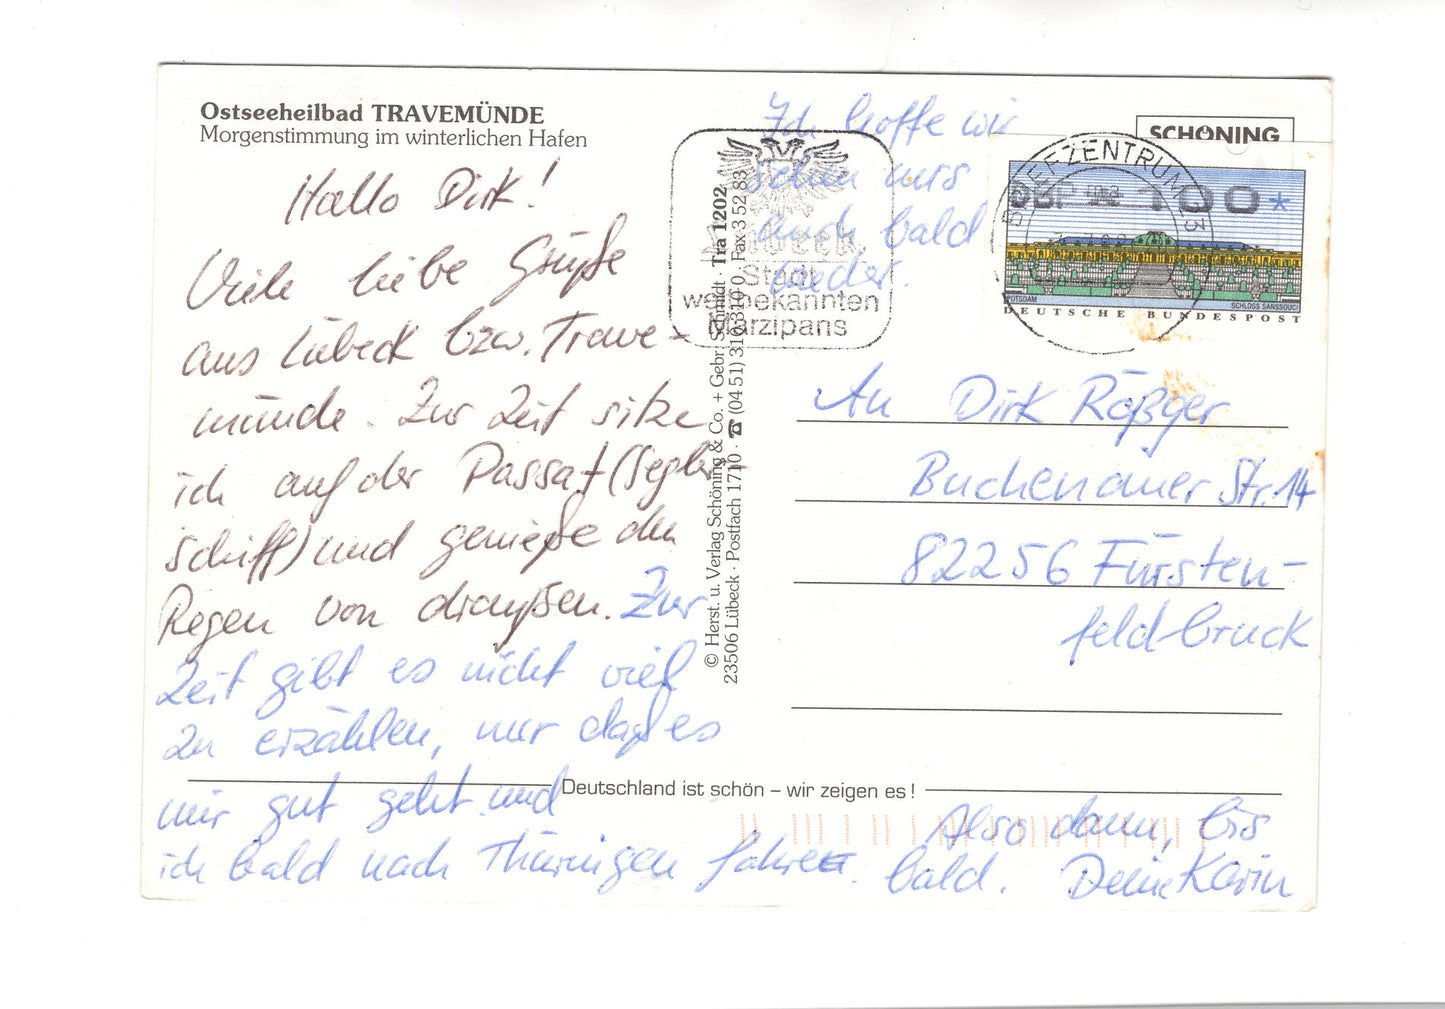 Ostseeheilbad TRAVEMÜNDE
Morgenstimmung im winterlichen Hafen
Hallo Dirk!
Viele liebe Grüße
aus Lübeck bzw. Trave-
münde. Zur Zeit sitze
ich auf der Passat (Segler-
schiff) und genieße den
Regen von draußen. Zur
Zeit gibt es nicht viel
zu erzählen, nur daß es
mir gut geht und
ich bald nach Thüringen fahre.
Ich hoffe wir
sehen uns
auch bald
wieder.
Also dann, bis
bald. Deine Karin
© Herst. u. Verlag Schöning & Co. + Gebr. Schmidt · Tra 1202
23506 Lübeck · Postfach 1710 · ☎ (04 51) 310 310 0, Fax 3 52 83
Stadt
weltbekannten
Marzipans
SCHÖNING
BRIEFZENTRUM 23
DBP 100*
POTSDAM
SCHLOSS SANSSOUCI
DEUTSCHE BUNDESPOST
An Dirk Rößger
Buchenauer Str. 14
82256 Fürsten-
feldbruck
Deutschland ist schön – wir zeigen es!